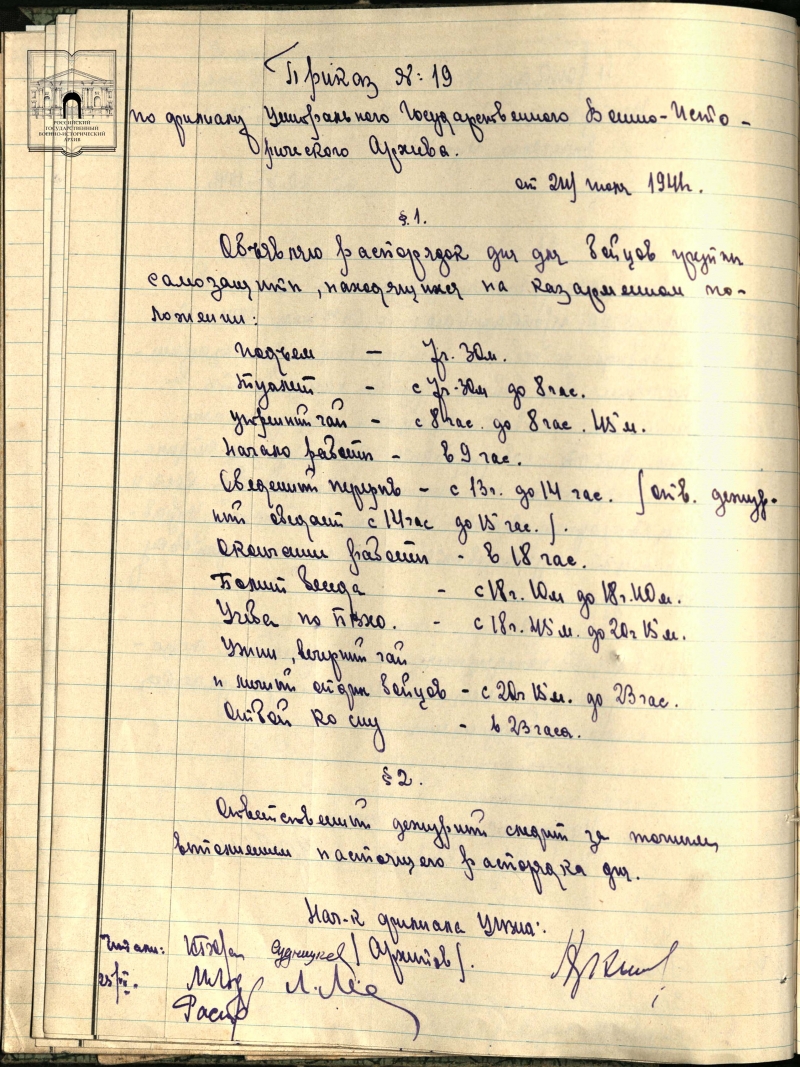 РОССИЙСКИЙ
ГОСУДАРСТВЕННЫЙ
ВОЕННО-ИСТОРИЧЕСКИЙ
АРХИВ
Приказ №: 19
по филиалу Центрального Государственного Военно-Исто-
рического Архива.
от 24/ июля 1941г.
§ 1.
Объявляю распорядок дня для бойцов группы
самозащиты, находящихся на казарменном по-
ложении:
Подъем — 7ч. 30м.
Туалет - с 7ч.-30м до 8 час.
утренний чай - с 8 час. до 8 час. 45 м.
Начало работы - в 9 час.
Обеденный перерыв - с 13ч. до 14 час. /отв. дежур-
ный обедает с 14 час до 15 час./.
Окончание работы - в 18 час.
Полит беседа - с 18ч. 10м до 18ч. 40м.
Учеба по ПВХО. - с 18ч. 45м. до 20ч 15м.
Ужин, вечерний чай
и личный отдых бойцов - с 20ч 15м. до 23 час.
Отбой ко сну - в 23 часа.
§ 2.
Ответственный дежурный следит за точным
выполнением настоящего распорядка дня.
Нач-к филиала ЦГВИА:
Читали: /Архипов/.